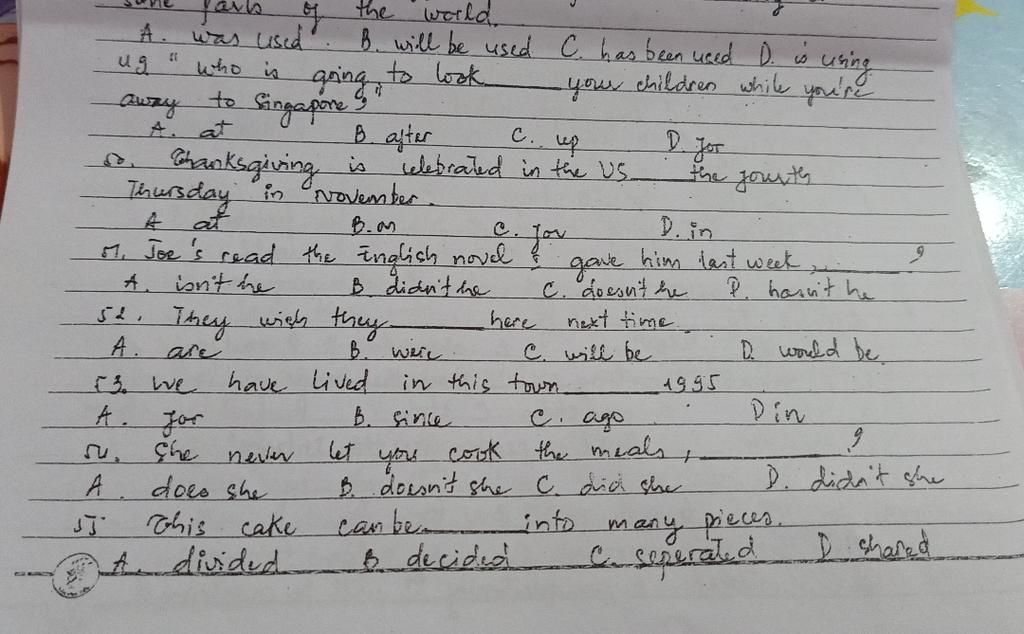 some parts of the world.
A. was used. B. will be used C. has been used D. is using
49 "who is going to look ______ your children while you're
away to Singapore?"
A. at B. after C. up D. for
50. Thanksgiving is celebrated in the US ______ the fourth
Thursday in November.
A at B. on C. for D. in
51. Joe's read the English novel I gave him last week, ______?
A. isn't he B. didn't he C. doesn't he D. hasn't he
52. They wish they ______ here next time.
A. are B. were C. will be D. would be
53. we have lived in this town ______ 1995
A. for B. since C. ago D in
54. She never let you cook the meals, ______?
A. does she B. doesn't she C. did she D. didn't she
55 This cake can be ______ into many pieces.
A. divided B. decided C. seperated D shared